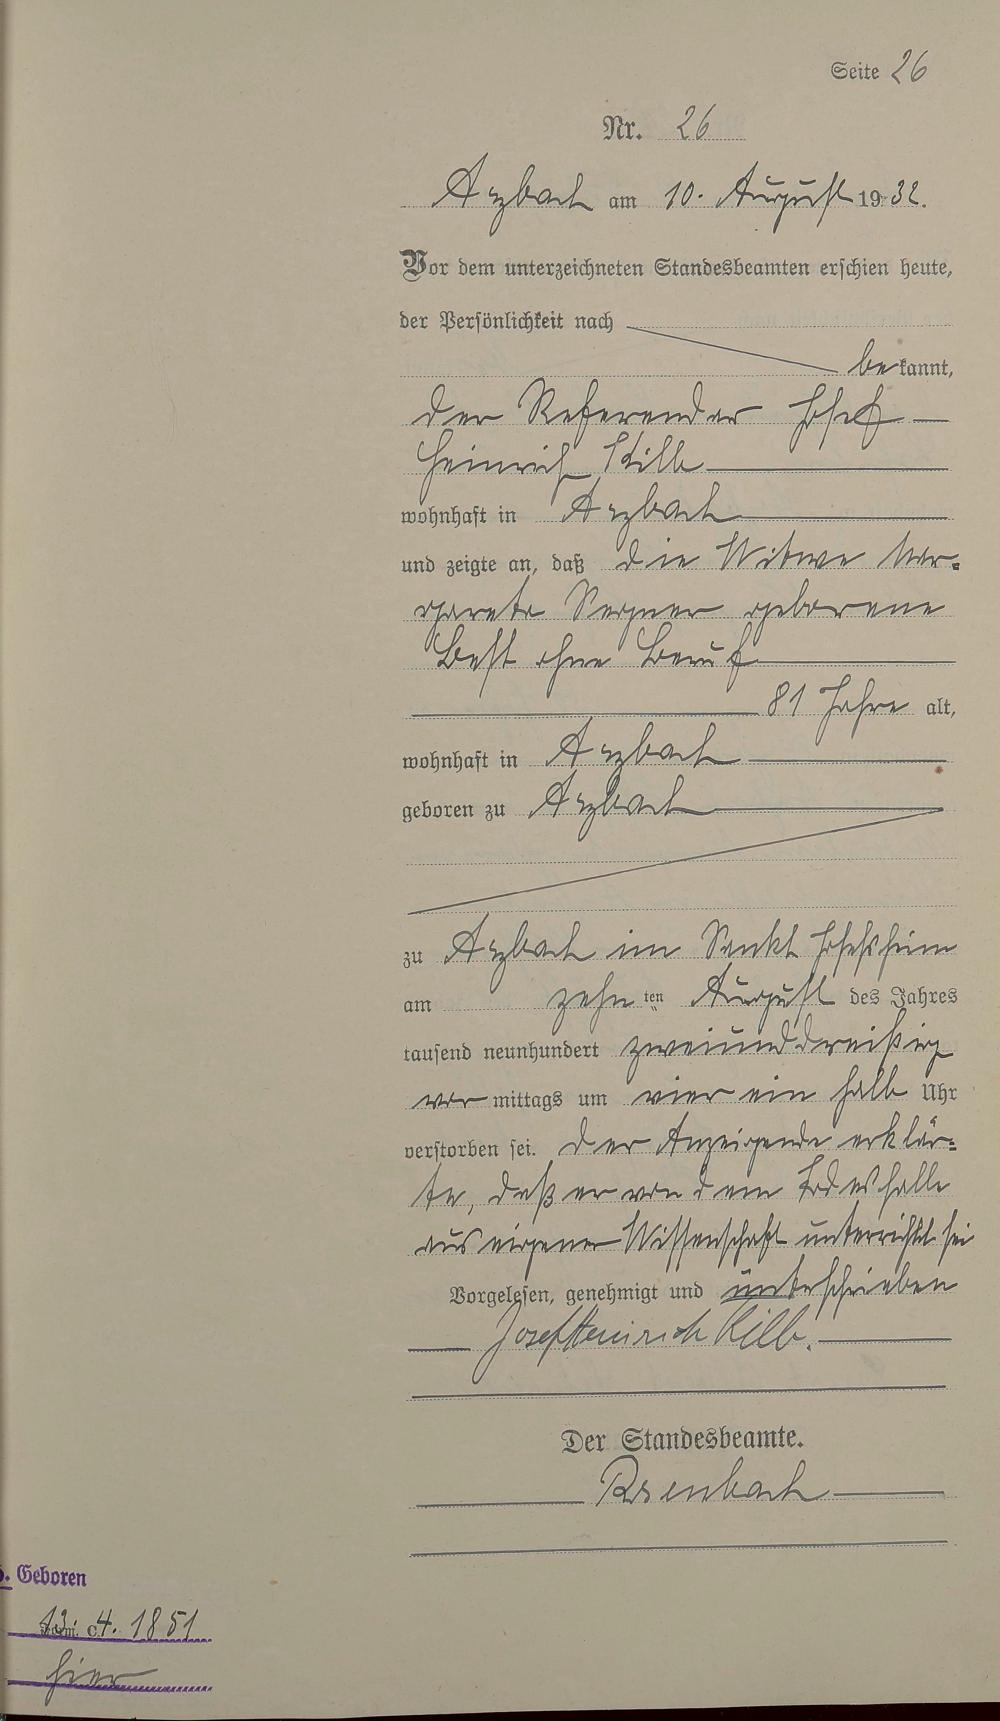 Seite 26
Nr. 26
Arzbach am 10. August 1932.
Vor dem unterzeichneten Standesbeamten erschien heute,
der Persönlichkeit nach
bekannt,
der Referendar Josef
Heinrich Kilb
wohnhaft in Arzbach
und zeigte an, daß die Witwe Mar-
gareta geborene
Best ohne Beruf
81 Jahre alt,
wohnhaft in Arzbach
geboren zu Arzbach
zu Arzbach im Sankt Josefsheim
am zehnten August des Jahres
tausend neunhundert zweiunddreißig
vormittags um vier ein halb Uhr
verstorben sei. Der Anzeigende erklär-
te, daß er von dem Todesfalle
aus eigener Wissenschaft unterrichtet sei
Vorgelesen, genehmigt und unterschrieben
Josef Heinrich Kilb.
Der Standesbeamte.
Geboren
4. 1851
hier